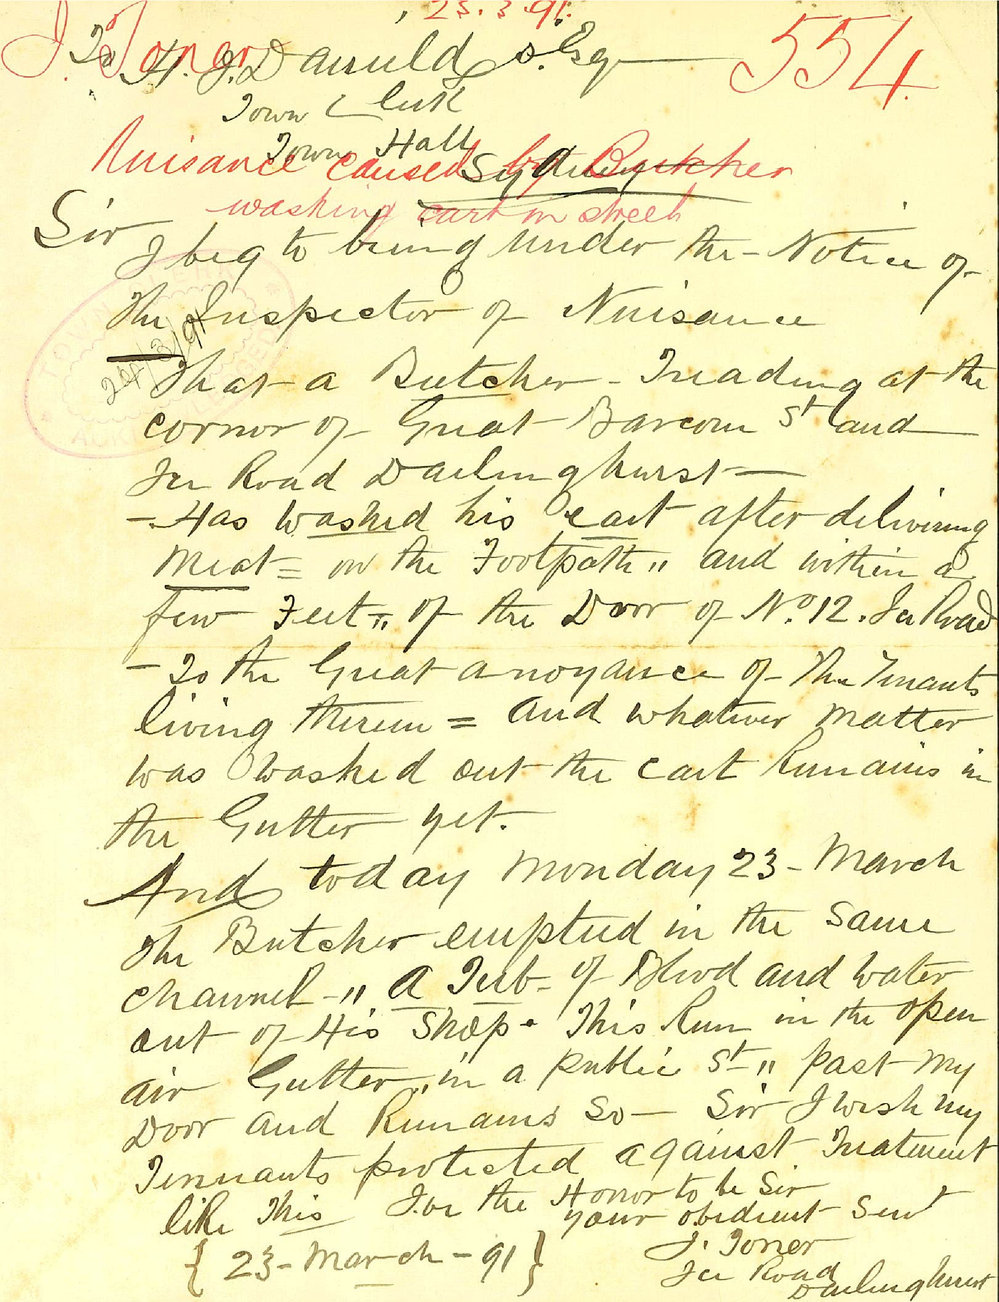 23.3.91.
J. Toner
554.
To H. J. Daniels. Esq
Town Clerk
Town Hall
Sydney
Nuisance caused by Butcher
washing cart in street
Sir
I beg to bring under the Notice of
the Inspector of Nuisance
24/3/91
That a Butcher - Treading at the
cornor of Great Barcom St and
Ice Road Darlinghurst —
- Has washed his cart after delivering
Meat = on the Footpath " and within a
few Feet " of the Door of No. 12. Ice Road
- To the Great anoyance of The Tenants
living therein = and whatever matter
was washed out the cart Remains in
the Gutter yet.
And today Monday 23 - March
the Butcher emptied in the same
channel - " A Tub - of Blood and water
out of His Shop. This Run in the open
air Gutter " in a public St " past My
Door and Remains So — Sir I wish my
Tennants protected against Treatment
like This I.ve the Honor to be Sir
your obedient Servt
{ 23 - March - 91 }
J. Toner
Ice Road
Darlinghurst